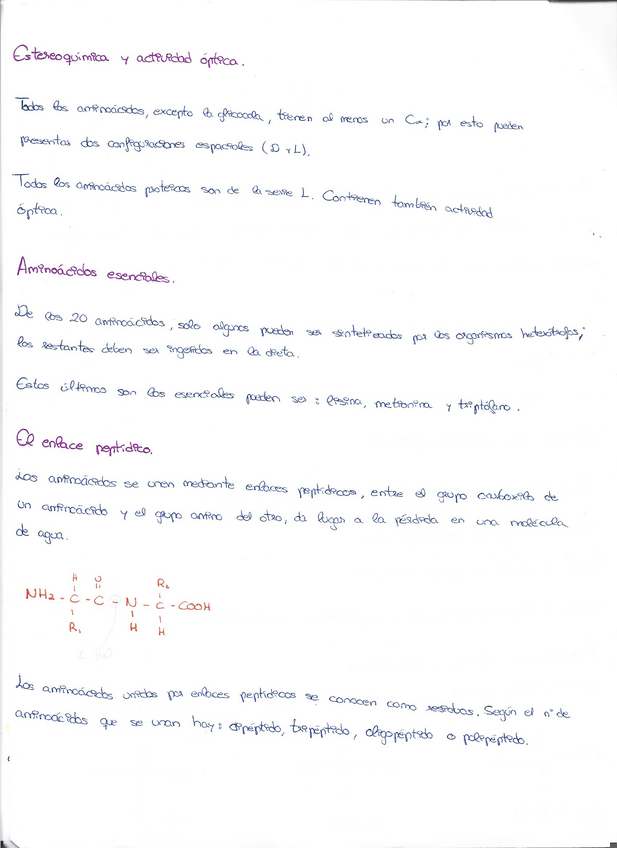 Estereoquímica y actividad óptica.
Todos los aminoácidos, excepto la glicocola, tienen al menos un Cα; por esto pueden
presentar dos configuraciones espaciales (D y L).
Todos los aminoácidos proteicos son de la serie L. Contienen también actividad
óptica.
Aminoácidos esenciales.
De los 20 aminoácidos, solo algunos pueden ser sintetizados por los organismos heterótrofos;
los restantes deben ser ingeridos en la dieta.
Estos últimos son los esenciales pueden ser: lisina, metionina y triptófano.
El enlace peptídico.
Los aminoácidos se unen mediante enlaces peptídicos, entre el grupo carboxilo de
un aminoácido y el grupo amino del otro, da lugar a la pérdida en una molécula
de agua.
H O R₂
NH2 - C - C - N - C - COOH
R₁ H H
Los aminoácidos unidos por enlaces peptídicos se conocen como residuos. Según el nº de
aminoácidos que se unan hay: dipéptido, tripéptido, oligopéptido o polipéptido.